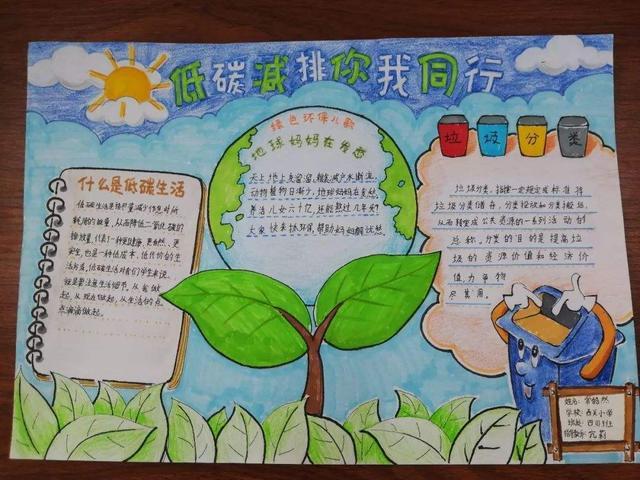 低碳减排你我同行
绿色环保儿歌
地球妈妈在发愁
天上地上灰溜溜,植被减少水断流,
动物植物日渐少,地球妈妈在发愁,
养活儿女六十亿,还能熬过几年头?
大家快来搞环保,帮助妈妈解忧愁。
什么是低碳生活
低碳生活是指尽量减少作息时所
耗用的能量,从而降低二氧化碳的
排放量,代表了一种更健康、更自然、更
安全,也是一种低成本、低代价的生
活方式,低碳生活对我们学生来说,
就是要注意生活细节,从我做
起,从现在做起,从生活的点
点滴滴做起。
垃圾分类
垃圾分类,指按一定规定或标准将
垃圾分类储存、分类投放和分类搬运,
从而转变成公共资源的一系列活动的
总称,分类的目的是提高垃
圾的资源价值和经济价
值,力争物
尽其用。
姓名:
学校:西关小学
班级:四
指导教师: